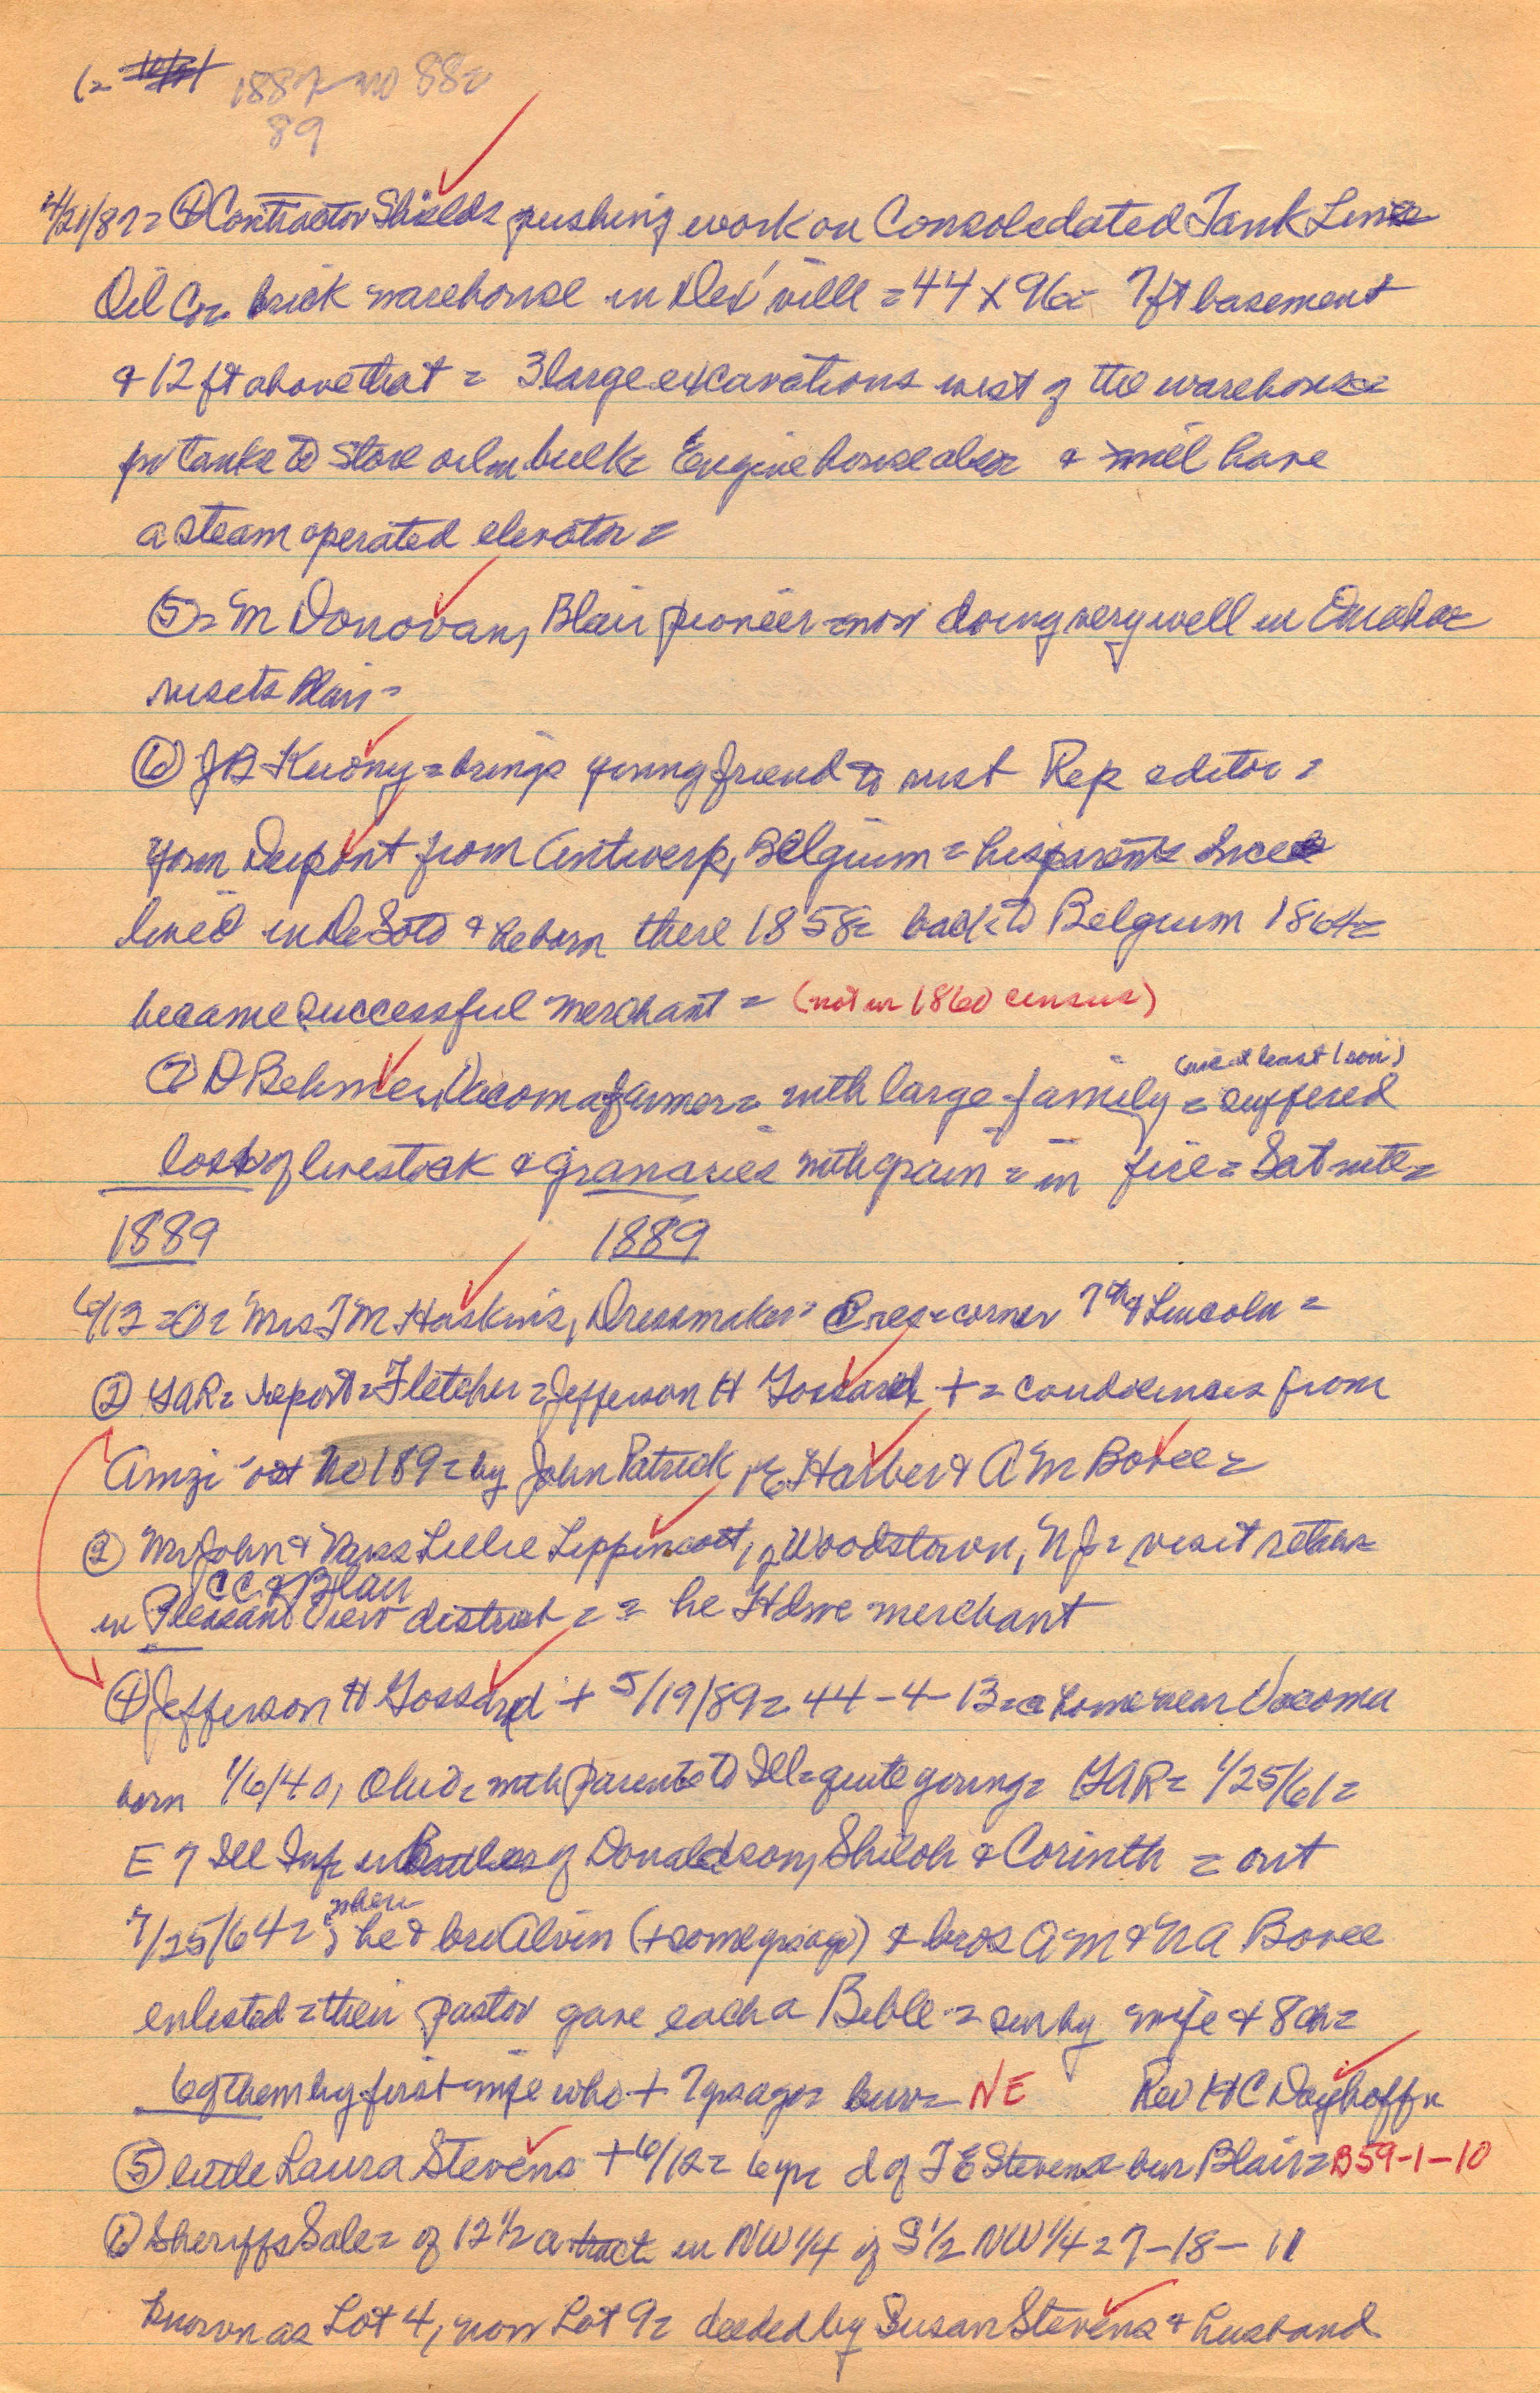 1887 no 88=
89
4/21/87= ④ Contractor Shields pushing work on Consoledated Tank Line
Oil Co= brick warehouse in Des'ville = 44 x 96= 7 ft basement
& 12 ft above that = 3 large excavations west of the warehouse
for tanks to store oil in bulk= Engine house also & will have
a steam operated elevator =
⑤= M Donovan, Blair pioneer now doing very well in Omaha=
visits Blair=
⑥ JB Kuony = brings young friend to visit Rep editor =
Dupont from Antwerp, Belgium = his parents
lived in DeSoto & he born there 1858= back to Belgium 1864=
became successful merchant = (not in 1860 census)
(we at least 1 son)
⑦ D Behmer, Vacoma farmer= with large family = suffered
loss of livestock & granaries with grain = in fire = Sat nite=
1889 1889
6/13 = ①= Mrs TM Haskins, Dressmaker= res=corner 7th & Lincoln =
② GAR= report= Fletcher = Jefferson H Gossard + = condolences from
Amzi No 189= by John Patrick, E Harber & AM Bovee=
③ Mr John & Miss Lillie Lippincott, of Woodstown, NJ= visit
CC & Blair
in Pleasant View district = = he Hdwe merchant
④ Jefferson H Gossard + 5/19/89= 44-4-13= a home near Vacoma
born 1/6/40, Ohio= with parents to Ill= quite young= GAR= 1/25/61=
E 7 Ill Inf= in Battles of Donaldson, Shiloh & Corinth = out
7/25/64= when
he & bro Alvin (+ some yrs ago) & bros AM & NA Bovee
enlisted = their pastor gave each a Bible = sur by wife & 8 ch=
6 of them by first wife who + 7 yrs ago= bur= NE Rev HC Dayhoff=
⑤ little Laura Stevens + 6/12= 6 yr d of TE Stevens= bur Blair= B59-1-10
⑥ Sheriffs Sale= of 12 1/2 a tract in NW 1/4 of S 1/2 NW 1/4 = 7-18-11
known as Lot 4, now Lot 9= deeded by Susan Stevens & husband